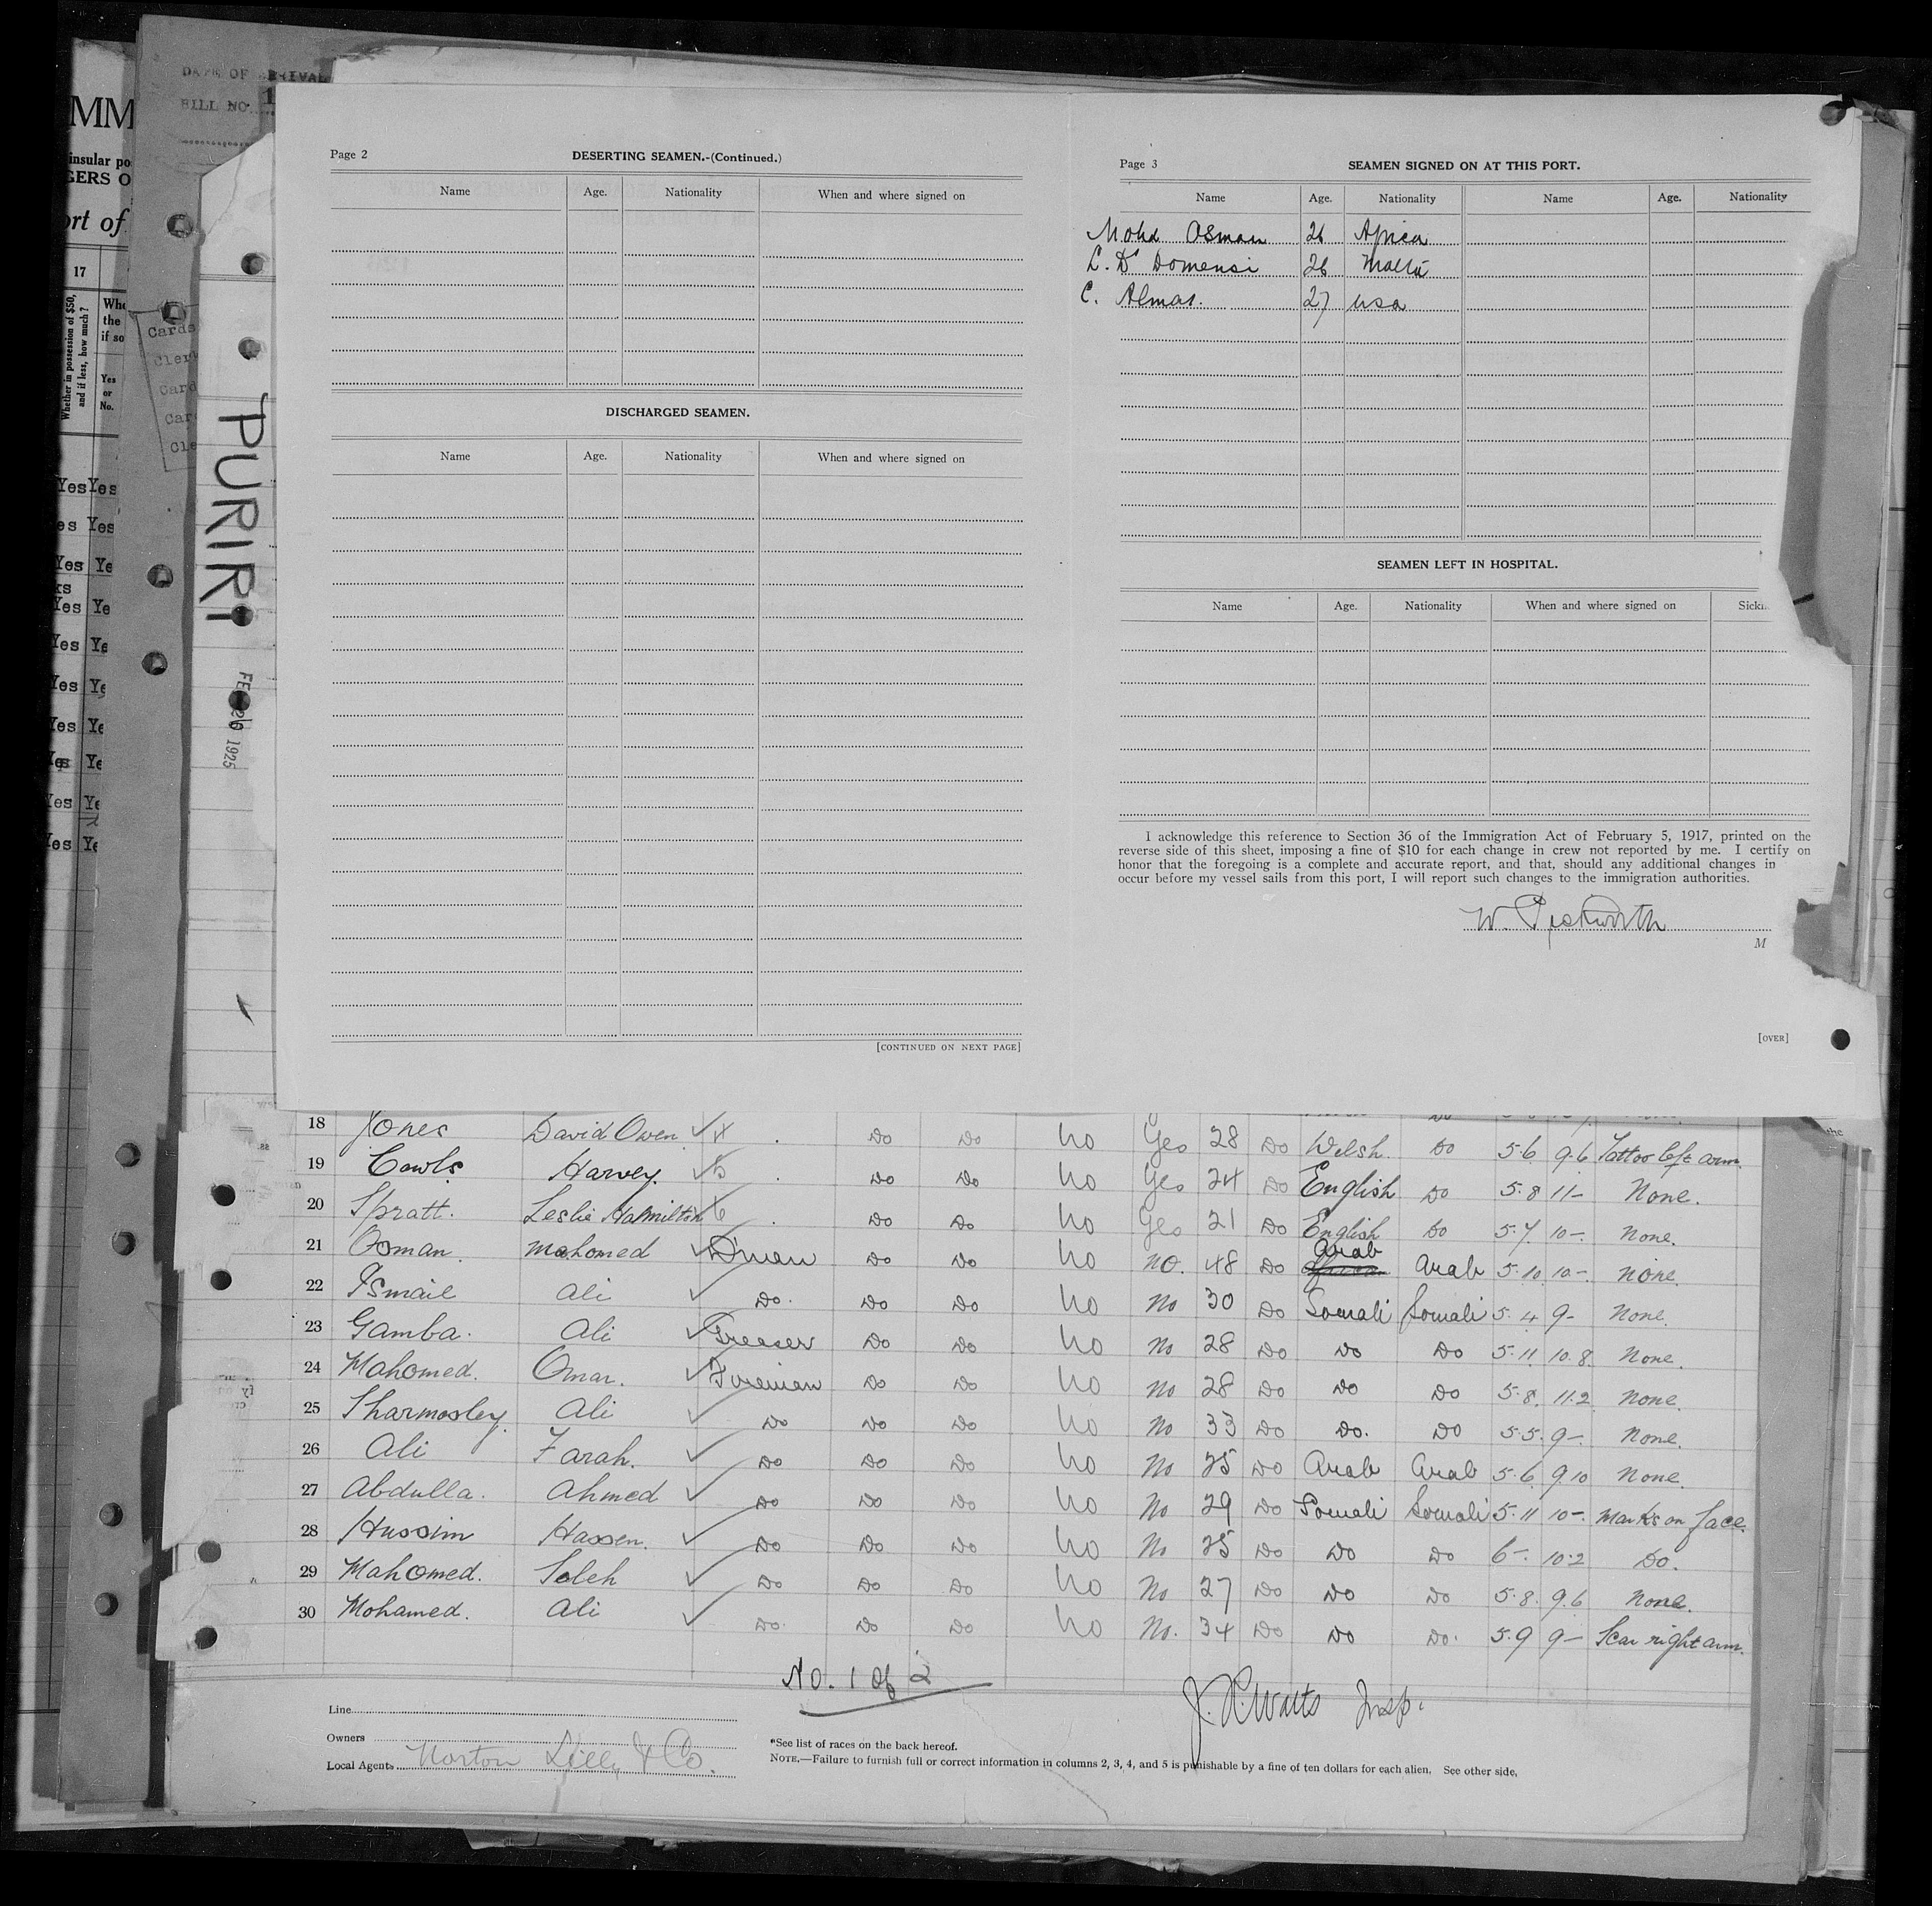 DATE OF ARRIVAL
BILL NO. 1
MM
insular po
GERS O
ort of
17
Whether in possession of $50, and if less, how much?
Whe
the
if so
Yes
or
No.
Cards
Cler
Card
Car
Cle
YesYes
es Yes
Yes Ye
ks
Yes Ye
Yes Ye
Yes Ye
Yes Ye
Yes Ye
Yes Ye
Yes Ye
PURIRI
FEB 20 1925
Page 2
DESERTING SEAMEN.-(Continued.)
Name Age. Nationality When and where signed on
DISCHARGED SEAMEN.
Name Age. Nationality When and where signed on
[CONTINUED ON NEXT PAGE]
Page 3
SEAMEN SIGNED ON AT THIS PORT.
Name Age. Nationality Name Age. Nationality
Mohd Osman 26 Africa
L. D' Domensi 26 Malta
C. Almas. 27 USA
SEAMEN LEFT IN HOSPITAL.
Name Age. Nationality When and where signed on Sickn
I acknowledge this reference to Section 36 of the Immigration Act of February 5, 1917, printed on the
reverse side of this sheet, imposing a fine of $10 for each change in crew not reported by me. I certify on
honor that the foregoing is a complete and accurate report, and that, should any additional changes in
occur before my vessel sails from this port, I will report such changes to the immigration authorities.
W.
M
[OVER]
18 Jones David Owen 4 Do Do No Yes 28 Do Welsh. Do 5.6 9.6 Tattoo left arm.
19 Cowls Harvey. 5 Do Do No Yes 24 Do English Do 5.8 11- None.
20 Spratt. Leslie Hamilton 6 Do Do No Yes 21 Do English Do 5.7. 10-. None.
21 Osman. Mahomed D'man Do Do No No. 48 Do African Arab Arab 5.10 10-. None.
22 Ismail Ali Do. Do Do No No 30 Do Somali Somali 5.4 9- None.
23 Gamba. Ali Greaser Do Do No No 28 Do Do Do 5.11. 10.8. None.
24 Mahomed. Omar. Fireman Do Do No No 28 Do Do Do 5.8. 11.2 None.
25 Sharmosley. Ali Do Do Do No No 33 Do Do. Do 5.5. 9-. None.
26 Ali Farah. Do Do Do No No 25 Do Arab Arab 5.6. 9.10 None.
27 Abdulla. Ahmed Do Do Do No No 29 Do Somali Somali 5.11 10-. Marks on face.
28 Hussim Hassen. Do Do Do No No 25 Do Do Do 6-. 10.2 Do.
29 Mahomed. Saleh Do Do Do No No 27 Do Do Do 5.8. 9.6 None.
30 Mohamed. Ali Do. Do Do No No. 34 Do Do Do. 5.9 9- Scar right arm.
No. 1 of 2
J. R. Watts Insp.
Line
Owners
Local Agents Norton Lilly & Co.
*See list of races on the back hereof.
NOTE.—Failure to furnish full or correct information in columns 2, 3, 4, and 5 is punishable by a fine of ten dollars for each alien. See other side.